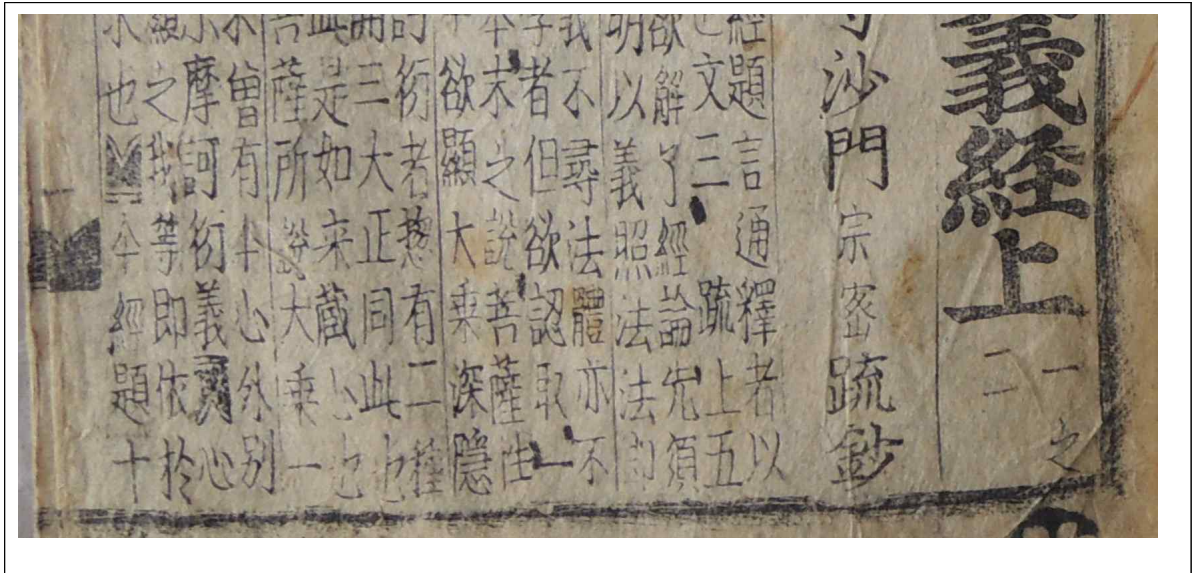 義経上一之
二
沙門宗宻䟽鈔
經題言通釋者以
文三䟽上五
欲解了經論先須
明以義照法法即
義不尋法體亦不
學者但欲認取一
本末之說菩薩性
欲顯大乘深隱
訶衍者揔有二種
開三大正同此也
此是如来藏心也
菩薩所說大乘一
未曾有一心外別
示摩訶衍義心
顯之我等即依於
求也本經題十